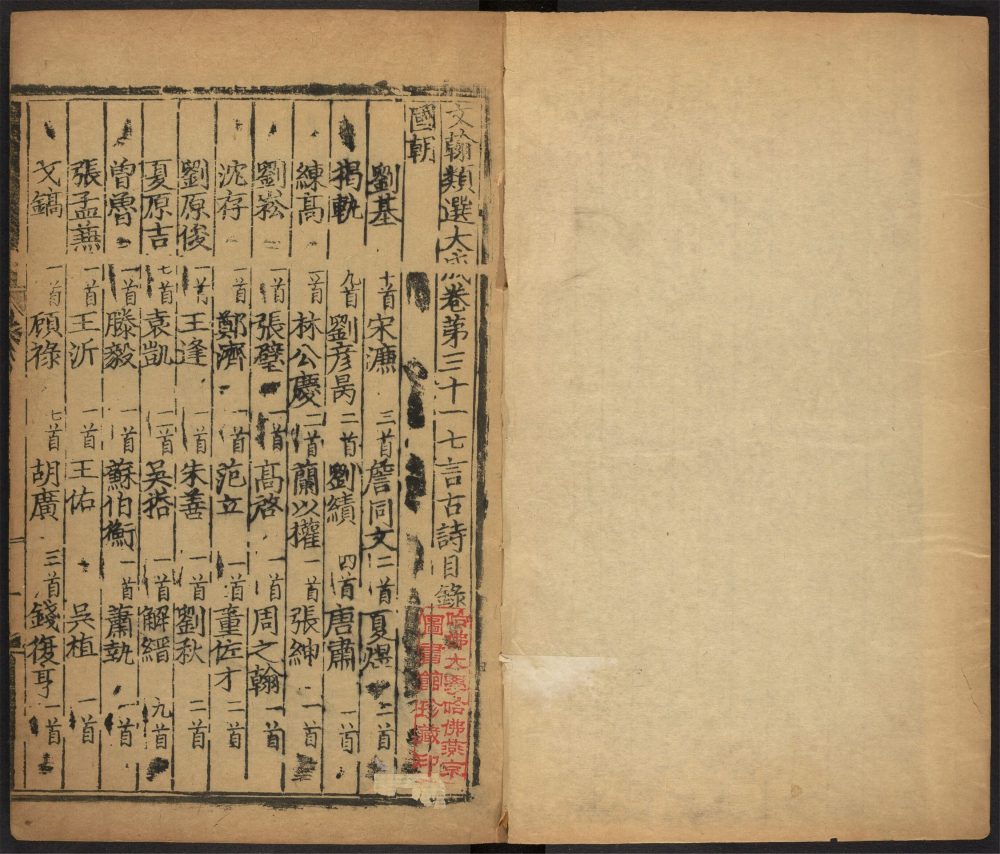 文翰類選大成卷第三十一七言古詩目錄
國朝
劉基 十首 宋濂 三首 詹同文 二首 夏煜 二首
揭軌 九首 劉彥昺 二首 劉績 四首 唐肅 一首
練高 一首 林公慶 二首 蘭以權 一首 張紳 二首
劉崧 一首 張璧 一首 高啓 一首 周之翰 一首
沈存 一首 鄭濟 一首 范立 一首 董佐才 二首
劉原俊 一首 王逢 一首 朱善 一首 劉秋 二首
夏原吉 七首 袁凱 二首 吳 一首 解縉 九首
曾魯 一首 滕毅 一首 蘇伯衡 一首 蕭執 一首
張孟蕪 一首 王沂 一首 王佑 吳植 一首
戈鎬 一首 顧祿 七首 胡廣 三首 錢復亨 一首
哈佛大學哈佛燕京
圖書館珍藏印